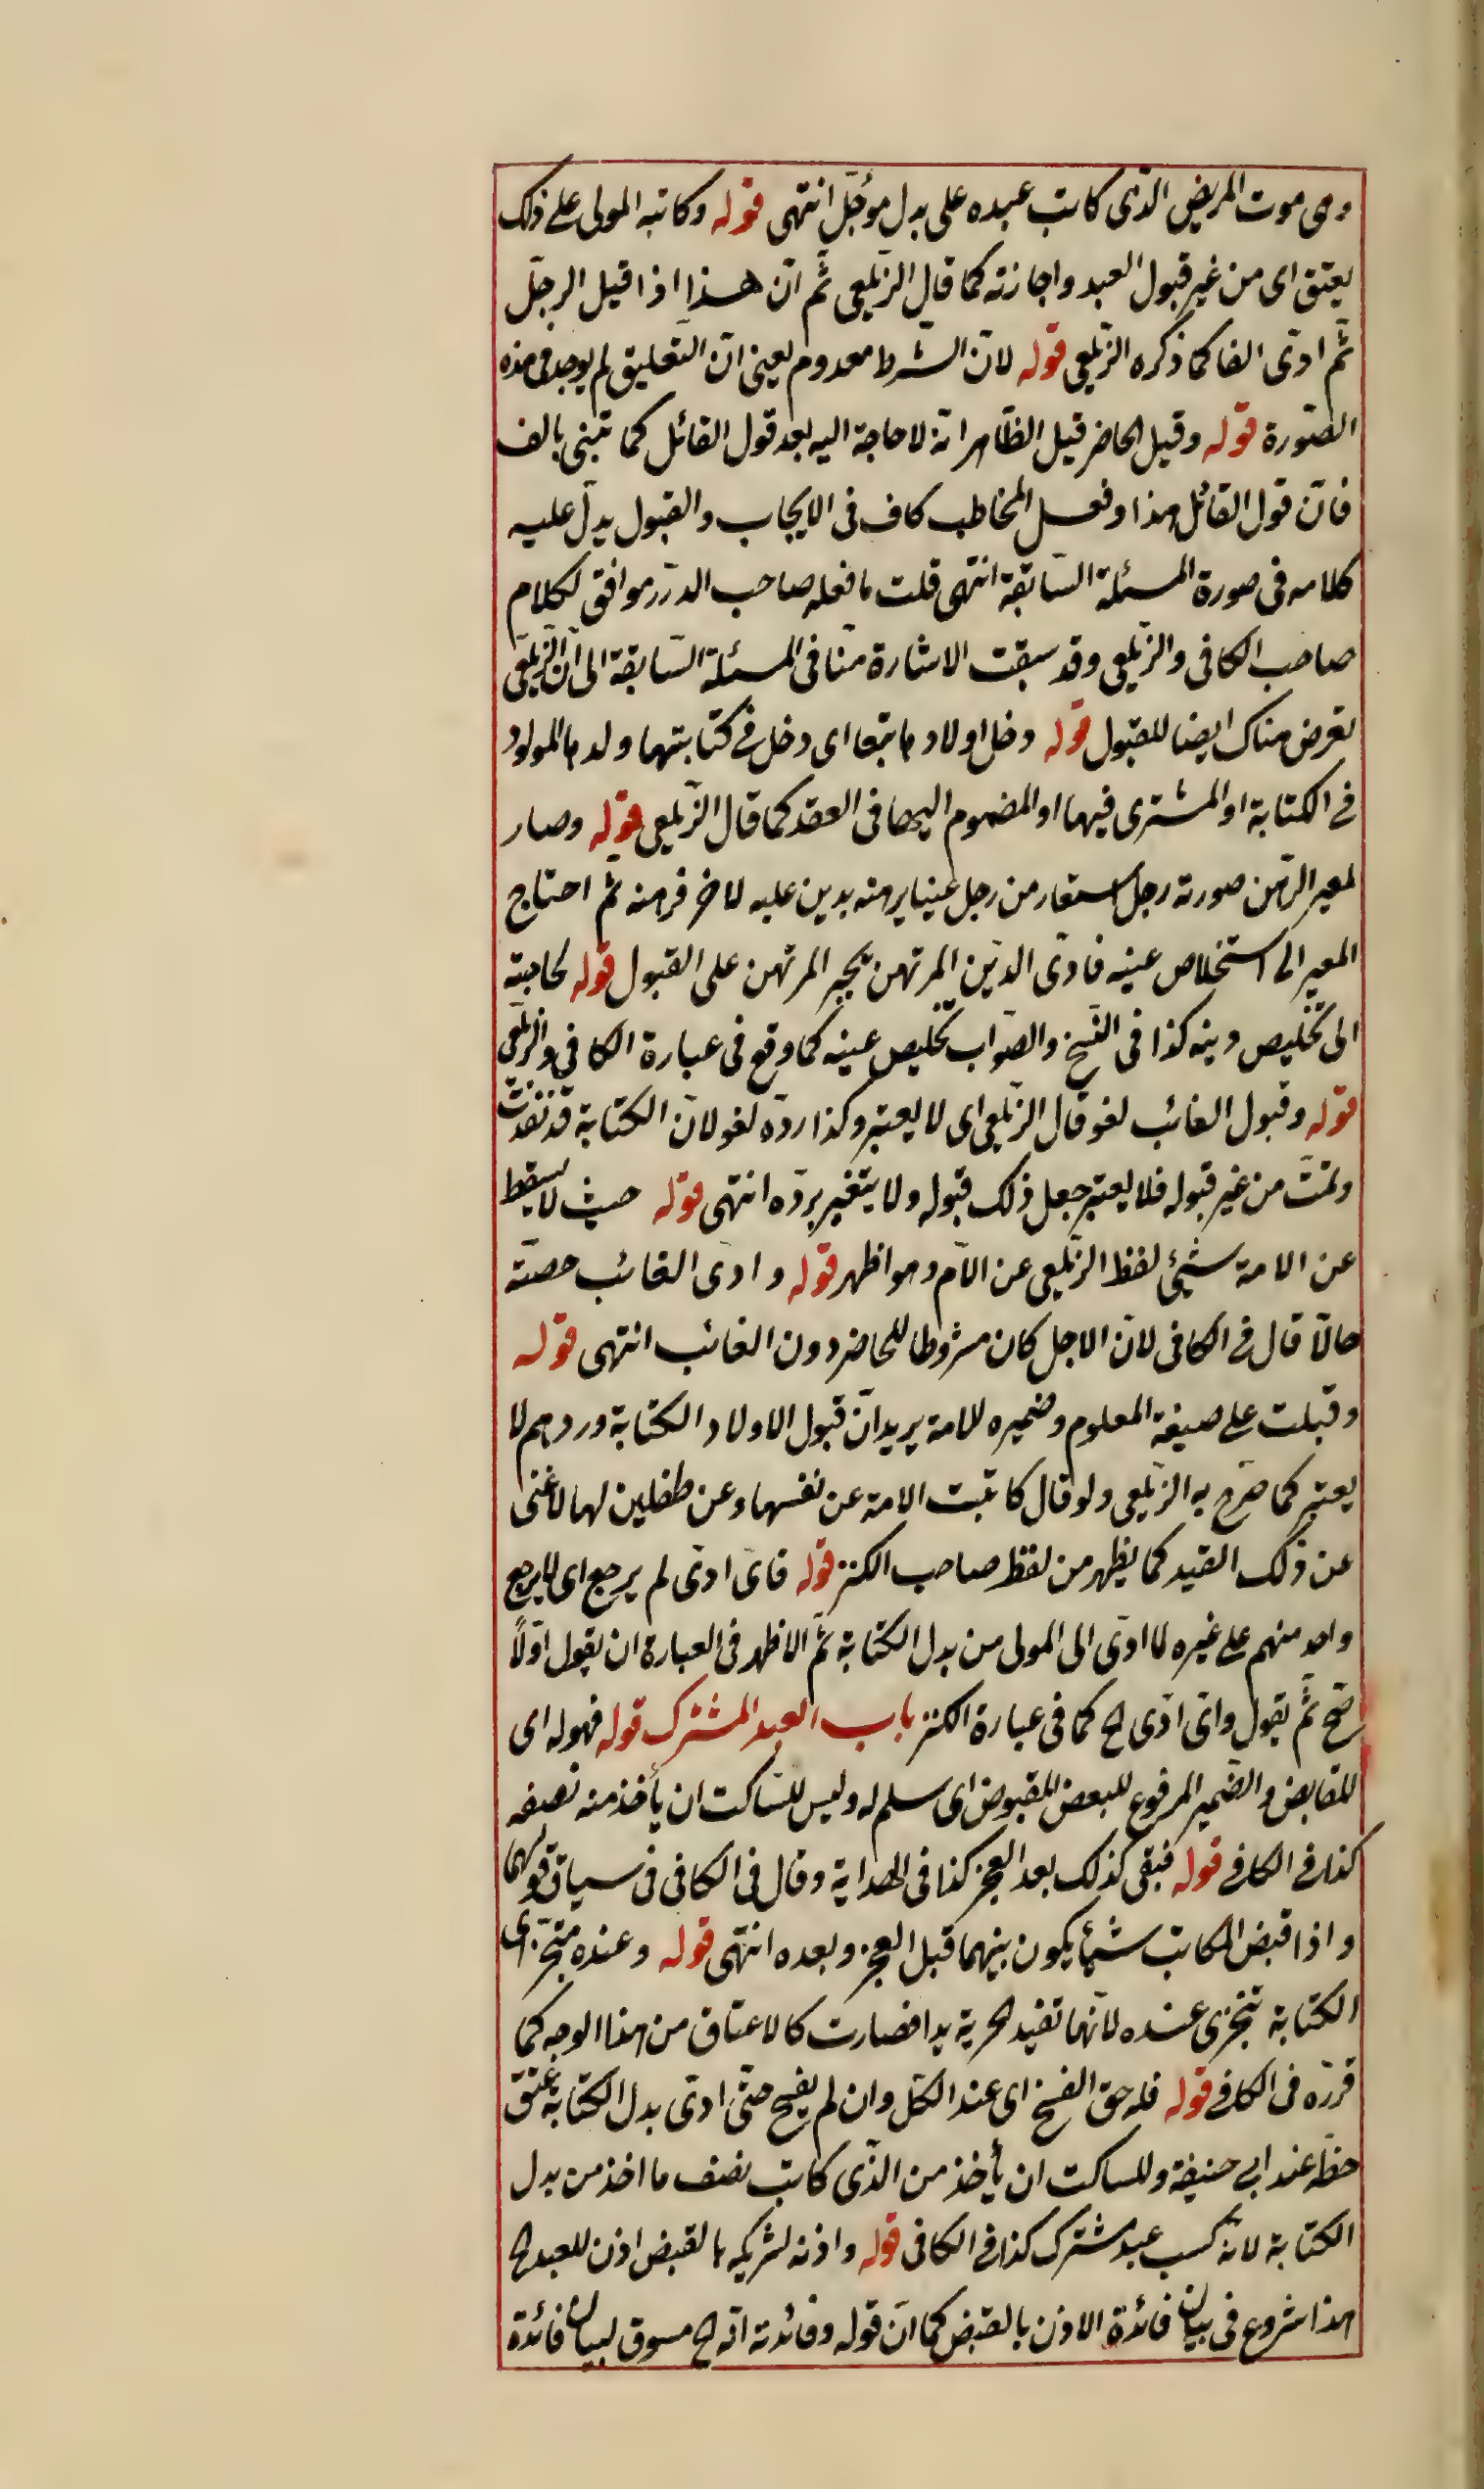 وهى موت المريض الّذى كاتب عبده على بدل مؤجّل انتهى قوله وكاتبه المولى على ذلك
يعتق اى من غير قبول العبد واجازته كما قال الزّيلعى ثمّ انّ هذا اذا قبل الرجل
ثمّ ادّى الفا كما ذكره الزّيلعى قوله لانّ الشّرط معدوم يعنى انّ التّعليق لم يوجد فى هذه
الصّورة قوله وقبل الحاضر قيل الظّاهر انّه لا حاجة اليه بعد قول القائل كما تبنى بالف
فانّ قول القائل هذا وفعل المخاطب كاف فى الايجاب والقبول يدلّ عليه
كلامه فى صورة المسئلة السّابقة انتهى قلت ما فعله صاحب الدّرر موافق لكلام
صاحب الكافى والزّيلعى وقد سبقت الاشارة منّا فى المسئلة السّابقة الى انّ الزّيلعى
تعرض هناك ايضا للقبول قوله دخل اولادها تبعا اى دخل فى كتابتهما ولدها المولود
فى الكتابة او المشترى فيها او المضموم اليها فى العقد كما قال الزّيلعى قوله وصار
لمعير الرّهن صورته رجل استعار من رجل عينا يرهنه بدين عليه لاخر فرهنه ثمّ احتاج
المعير الى استخلاص عينه فادّى الدّين المرتهن يجبر المرتهن على القبول قوله لحاجته
الى تخليص دينه كذا فى النّسخ والصّواب تخليص عينه كما وقع فى عبارة الكافى والزّيلعى
قوله وقبول الغائب لغو قال الزّيلعى اى لا يعتبر وكذا ردّه لغو لانّ الكتابة قد نفذت
وتمّت من غير قبوله فلا يعتبر جعل ذلك قبوله ولا يتغير بردّه انتهى قوله حيث لا يسقط
عن الامة شيئ لفظ الزّيلعى عن الامّ وهو اظهر قوله وادّى الغائب حصّته
حالّا قال فى الكافى لانّ الاجل كان مشروطا للحاضر دون الغائب انتهى قوله
وقبلت على صيغة المعلوم وضميره للامة يريد انّ قبول الاولاد الكتابة وردهم لا
يعتبر كما صرّح به الزّيلعى ولو قال كاتبت الامة عن نفسها وعن طفلين لها لاغنى
عن ذلك القيد كما يظهر من لفظ صاحب الكنز قوله فاىّ ادّى لم يرجع اى لا يرجع
واحد منهم على غيره لما ادّى الى المولى من بدل الكتابة ثمّ الاظهر فى العبارة ان يقول اوّلاً
صحّ ثمّ يقول واىّ ادّى الخ كما فى عبارة الكنز باب العبد المشترك قوله فهو له اى
للقابض والضّمير المرفوع للبعض المقبوض اى سلم له وليس للسّاكت ان يأخذ منه نصفه
كذا فى الكافى قوله فبقى كذلك بعد العجز كذا فى الهداية وقال فى الكافى فى سياق قولهما
واذا قبض المكاتب شيئا يكون بينهما قبل العجز وبعده انتهى قوله وعنده متجزّى اى
الكتابة تتجزى عنده لانّها تفيد الحرية يدا فصارت كالاعتاق من هذا الوجه كما
قرّره فى الكافى قوله فله حق الفسخ اى عند الكلّ وان لم يفسخ حتّى ادّى بدل الكتابة عتق
حظّه عند ابى حنيفة وللساكت ان يأخذ من الّذى كاتب نصف ما اخذ من بدل
الكتابة لانّه كسب عبد مشترك كذا فى الكافى قوله واذنه لشريكه بالقبض اذن للعبد الخ
هذا شروع فى بيان فائدة الاذن بالقبض كما انّ قوله وفائدته انّه الخ مسوق لبيان فائدة